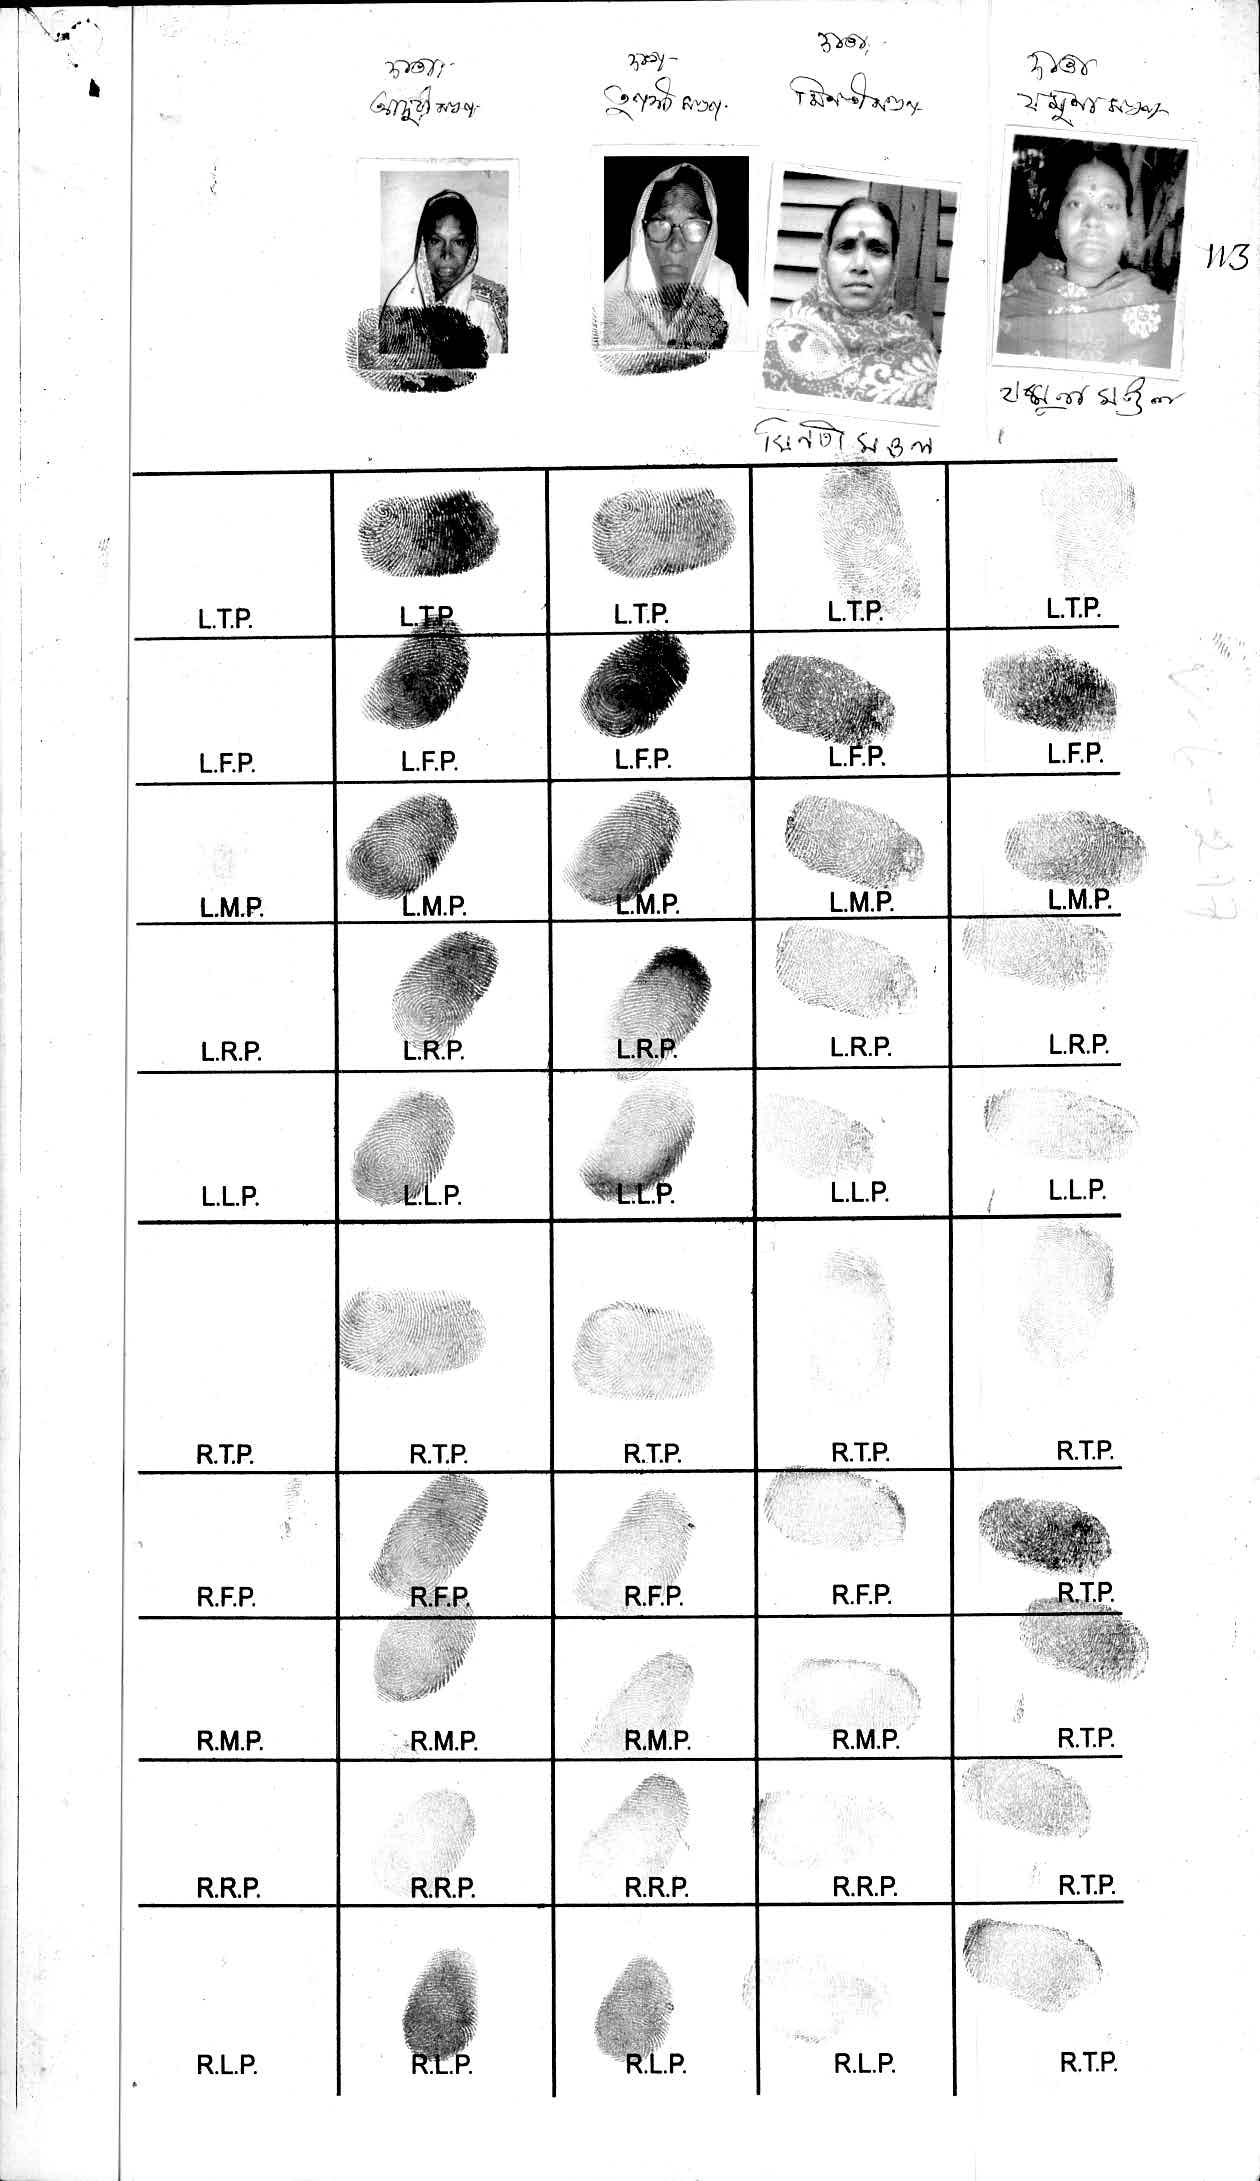 দাতা
দাতা
দাতা
দাতা
মণ্ডল
তুলসী মণ্ডল
মিনতী মণ্ডল
যমুনা মণ্ডল
113
যমুনা মণ্ডল
মিনতী মণ্ডল
L.T.P. L.T.P. L.T.P. L.T.P. L.T.P.
L.F.P. L.F.P. L.F.P. L.F.P. L.F.P.
L.M.P. L.M.P. L.M.P. L.M.P. L.M.P.
L.R.P. L.R.P. L.R.P. L.R.P. L.R.P.
L.L.P. L.L.P. L.L.P. L.L.P. L.L.P.
R.T.P. R.T.P. R.T.P. R.T.P. R.T.P.
R.F.P. R.F.P. R.F.P. R.F.P. R.T.P.
R.M.P. R.M.P. R.M.P. R.M.P. R.T.P.
R.R.P. R.R.P. R.R.P. R.R.P. R.T.P.
R.L.P. R.L.P. R.L.P. R.L.P. R.T.P.